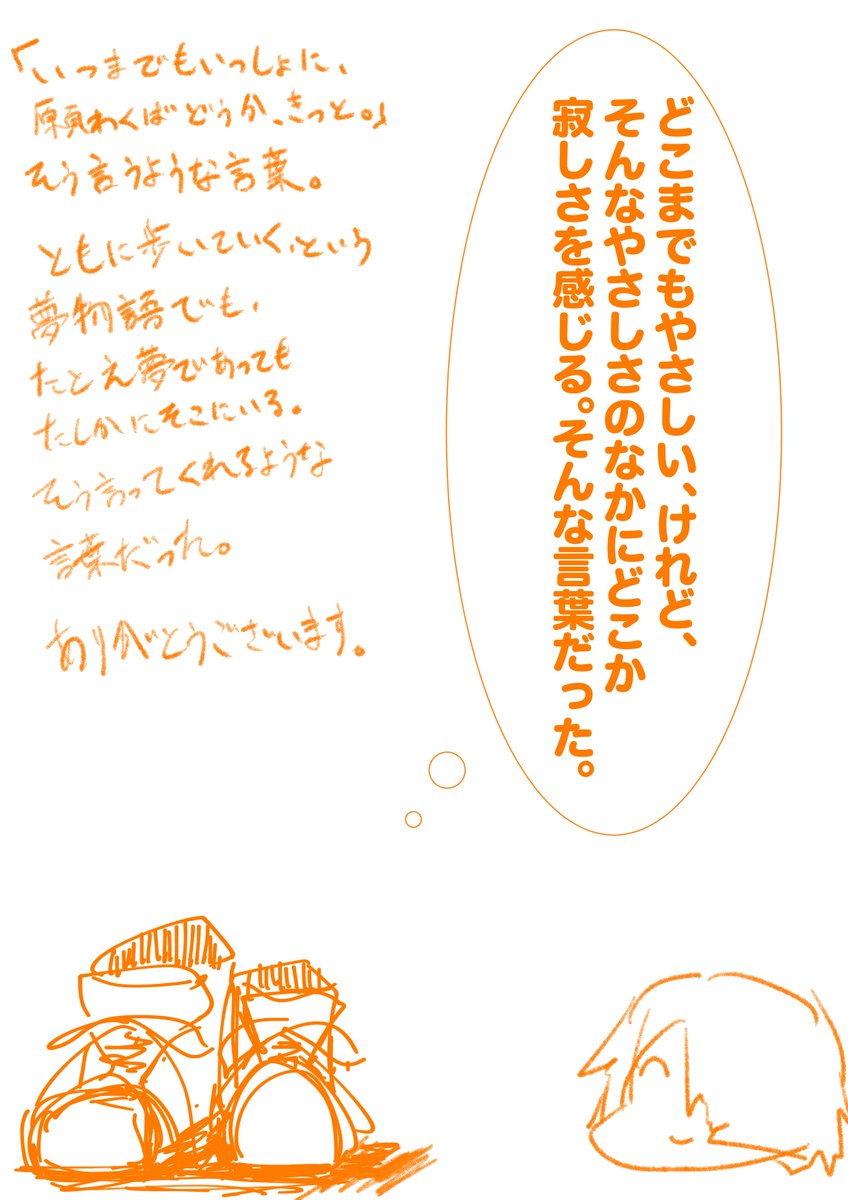 どこまでもやさしい、けれど、
そんなやさしさのなかにどこか
寂しさを感じる。そんな言葉だった。
「いつまでもいっしょに、
願わくばどうか、きっと。」
そう言うような言葉。
ともに歩いていく、という
夢物語でも、
たとえ夢であっても
たしかにそこにいる。
そう言ってくれるような
言葉だった。
ありがとうございます。